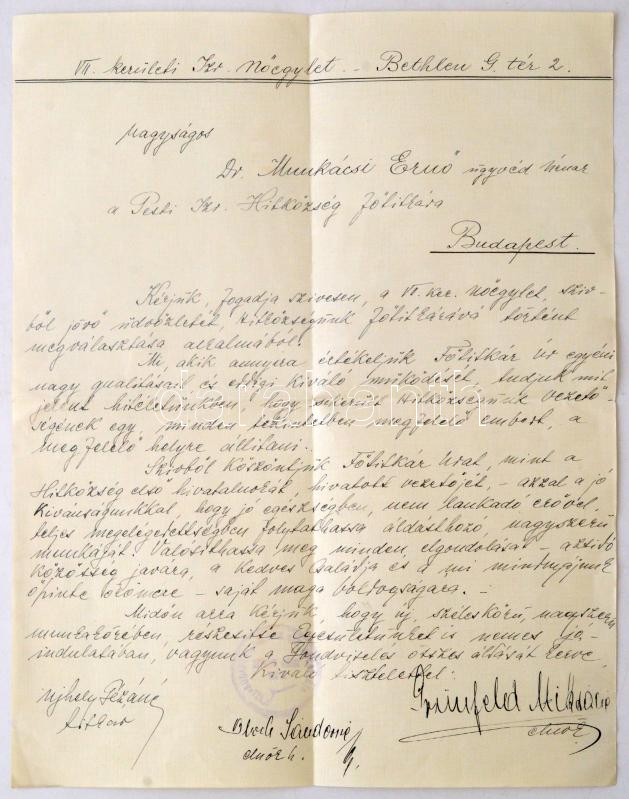 VII. kerületi Izr. Nőegylet. - Bethlen G. tér 2.
Nagyságos
Dr. Munkácsi Ernő ügyvéd úrnak
a Pesti Izr. Hitközség főtitkára
Budapest.
Kérjük, fogadja szivesen, a VII. ker. Nőegylet, sziv-
ből jövő üdvözletét, Hitközségünk főtitkárává történt
megválasztása alkalmából.
Mi, akik annyira értékeljük Főtitkár Úr egyéni
nagy qualitásait és eddigi kiváló működését, tudjuk mit
jelent hitéletünkben, hogy sikerült Hitközségünk vezető-
ségének egy, minden tekintetben megfelelő embert, a
megfelelő helyre állitani.
Szivből köszöntjük Főtitkár Urat, mint a
Hitközség első hivatalnokát, hivatott vezetőjét, - azzal a jó
kivánságunkkal, hogy jó egészségben, nem lankadó erővel,
teljes megelégedettségben folytathassa áldásthozó, nagyszerü
munkáját. Valósithassa meg minden, elgondolását - a zsidó
közösség javára, a kedves családja és a mi mindnyájunk
őszinte örömére - saját maga boldogságára. -
Midőn arra kérjük, hogy új, széleskörü, nagyszerü
munkakörében, részesitse Egyesületünket is nemes jó-
indulatában, vagyunk a Gondviselés áldását kérve,
Kiváló tisztelettel:
Ujhely
titkár
Bloch Sándorné
elnök h.
Grünfeld Miksáné
elnök